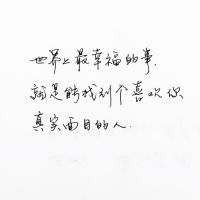 世界上最幸福的事，
就是能找到个喜欢你
真实面目的人．